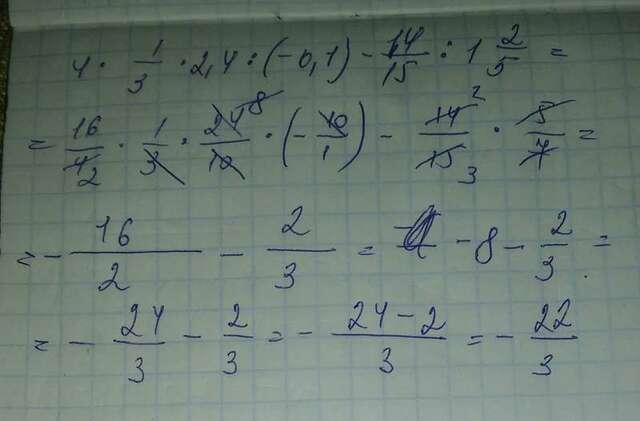 4 · 1/3 · 2,4 : (-0,1) - 14/15 : 1 2/5 =
= 16/42 · 1/3 · 24 8/10 · (-10/1) - 14 2/15 3 · 5/7 =
= - 16/2 - 2/3 = - 8 - 2/3 =
= - 24/3 - 2/3 = - 24-2/3 = - 22/3